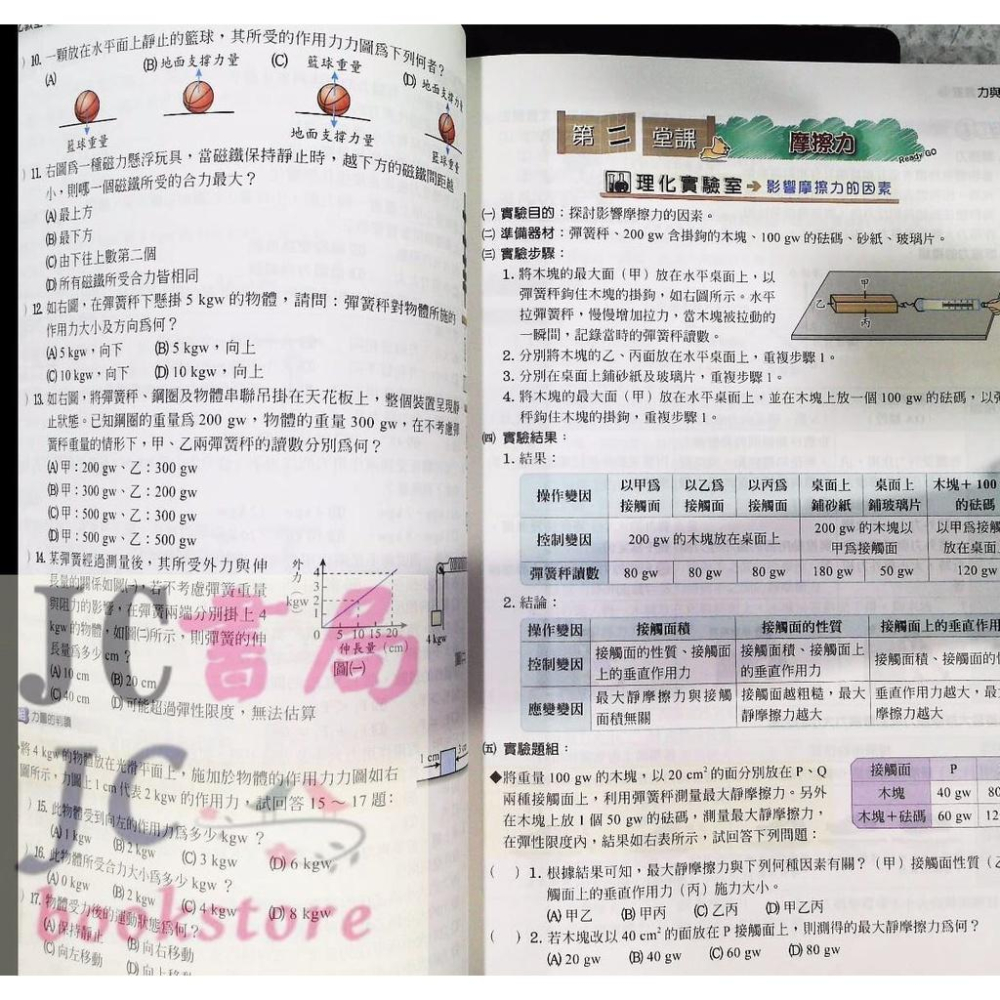 ) 10. 一顆放在水平面上靜止的籃球，其所受的作用力力圖為下列何者？
(A) (B) 地面支撐力量 (C) 籃球重量 (D) 地面支撐力量
籃球重量 地面支撐力量 籃球重量
) 11. 右圖為一種磁力懸浮玩具，當磁鐵保持靜止時，越下方的磁鐵間距越
小，則哪一個磁鐵所受的合力最大？
(A) 最上方
(B) 最下方
(C) 由下往上數第二個
(D) 所有磁鐵所受合力皆相同
) 12. 如右圖，在彈簧秤下懸掛 5 kgw 的物體，請問：彈簧秤對物體所施的
作用力大小及方向為何？
(A) 5 kgw，向下 (B) 5 kgw，向上
(C) 10 kgw，向下 (D) 10 kgw，向上
) 13. 如右圖，將彈簧秤、鋼圈及物體串聯吊掛在天花板上，整個裝置呈現靜
止狀態。已知鋼圈的重量為 200 gw，物體的重量 300 gw，在不考慮彈
簧秤重量的情形下，甲、乙兩彈簧秤的讀數分別為何？
(A) 甲：200 gw、乙：300 gw
(B) 甲：300 gw、乙：200 gw
(C) 甲：500 gw、乙：300 gw
(D) 甲：500 gw、乙：500 gw
) 14. 某彈簧經過測量後，其所受外力與伸
長量的關係如圖(一)，若不考慮彈簧重量
與阻力的影響，在彈簧兩端分別掛上 4
kgw 的物體，如圖(二)所示，則彈簧的伸
長量為多少 cm？
(A) 10 cm (B) 20 cm
(C) 40 cm (D) 可能超過彈性限度，無法估算
外力 (kgw)
4
3
2
1
0 5 10 15 20
伸長量 (cm)
圖(一)
4 kgw
力圖的判讀
將 4 kgw 的物體放在光滑平面上，施加於物體的作用力力圖如右
圖所示，力圖上 1 cm 代表 2 kgw 的作用力，試回答 15 ～ 17 題：
1 cm 3 cm
) 15. 此物體受到向左的作用力為多少 kgw？
(A) 1 kgw (B) 2 kgw (C) 3 kgw (D) 6 kgw
) 16. 此物體所受合力大小為多少 kgw？
(A) 0 kgw (B) 2 kgw (C) 4 kgw (D) 8 kgw
) 17. 物體受力後的運動狀態為何？
(A) 保持靜止 (B) 向右移動
(C) 向左移動 (D) 向上移動
JC書局
JC
bookstore
力與
第二堂課 摩擦力
Ready GO
理化實驗室 → 影響摩擦力的因素
(一) 實驗目的：探討影響摩擦力的因素。
(二) 準備器材：彈簧秤、200 gw 含掛鉤的木塊、100 gw 的砝碼、砂紙、玻璃片。
(三) 實驗步驟：
1. 將木塊的最大面（甲）放在水平桌面上，以
彈簧秤鉤住木塊的掛鉤，如右圖所示。水平
拉彈簧秤，慢慢增加拉力，當木塊被拉動的
一瞬間，記錄當時的彈簧秤讀數。
甲
乙
丙
2. 分別將木塊的乙、丙面放在水平桌面上，重複步驟 1。
3. 分別在桌面上鋪砂紙及玻璃片，重複步驟 1。
4. 將木塊的最大面（甲）放在水平桌面上，並在木塊上放一個 100 gw 的砝碼，以彈
秤鉤住木塊的掛鉤，重複步驟 1。
(四) 實驗結果：
1. 結果：
操作變因 以甲為接觸面 以乙為接觸面 以丙為接觸面 桌面上鋪砂紙 桌面上鋪玻璃片 木塊＋100 的砝碼
控制變因 200 gw 的木塊放在桌面上 200 gw 的木塊以甲為接觸面 以甲為接觸 放在桌面
彈簧秤讀數 80 gw 80 gw 80 gw 180 gw 50 gw 120 gw
2. 結論：
操作變因 接觸面積 接觸面的性質 接觸面上的垂直作用
控制變因 接觸面的性質、接觸面上的垂直作用力 接觸面積、接觸面上的垂直作用力 接觸面積、接觸面的
應變變因 最大靜摩擦力與接觸面積無關 接觸面越粗糙，最大靜摩擦力越大 垂直作用力越大，最 摩擦力越大
(五) 實驗題組：
◆將重量 100 gw 的木塊，以 20 cm² 的面分別放在 P、Q
兩種接觸面上，利用彈簧秤測量最大靜摩擦力。另外
在木塊上放 1 個 50 gw 的砝碼，測量最大靜摩擦力，
在彈性限度內，結果如右表所示，試回答下列問題：
接觸面 P
木塊 40 gw 80
木塊＋砝碼 60 gw 12
( ) 1. 根據結果可知，最大靜摩擦力與下列何種因素有關？（甲）接觸面性質（乙
觸面上的垂直作用力（丙）施力大小。
(A) 甲乙 (B) 甲丙 (C) 乙丙 (D) 甲乙丙
( ) 2. 若木塊改以 40 cm² 的面放在 P 接觸面上，則測得的最大靜摩擦力為何？
(A) 20 gw (B) 40 gw (C) 60 gw (D) 80 gw